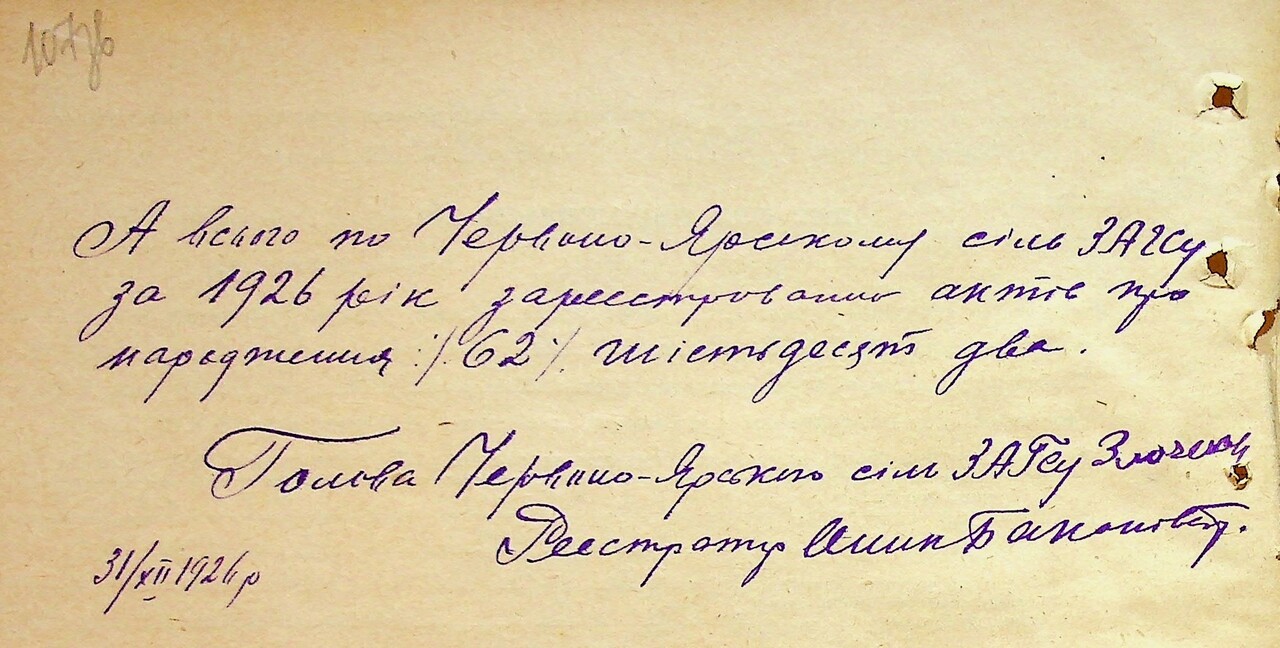 107зв
А всього по Червоно-Ярському сіль ЗАГСу
за 1926 рік зареєстровано актів про
народження :/62/. шістьдесят два.
Голова Червоно-Ярського сіль ЗАГСу
Реєстратор
31/XII 1926 р